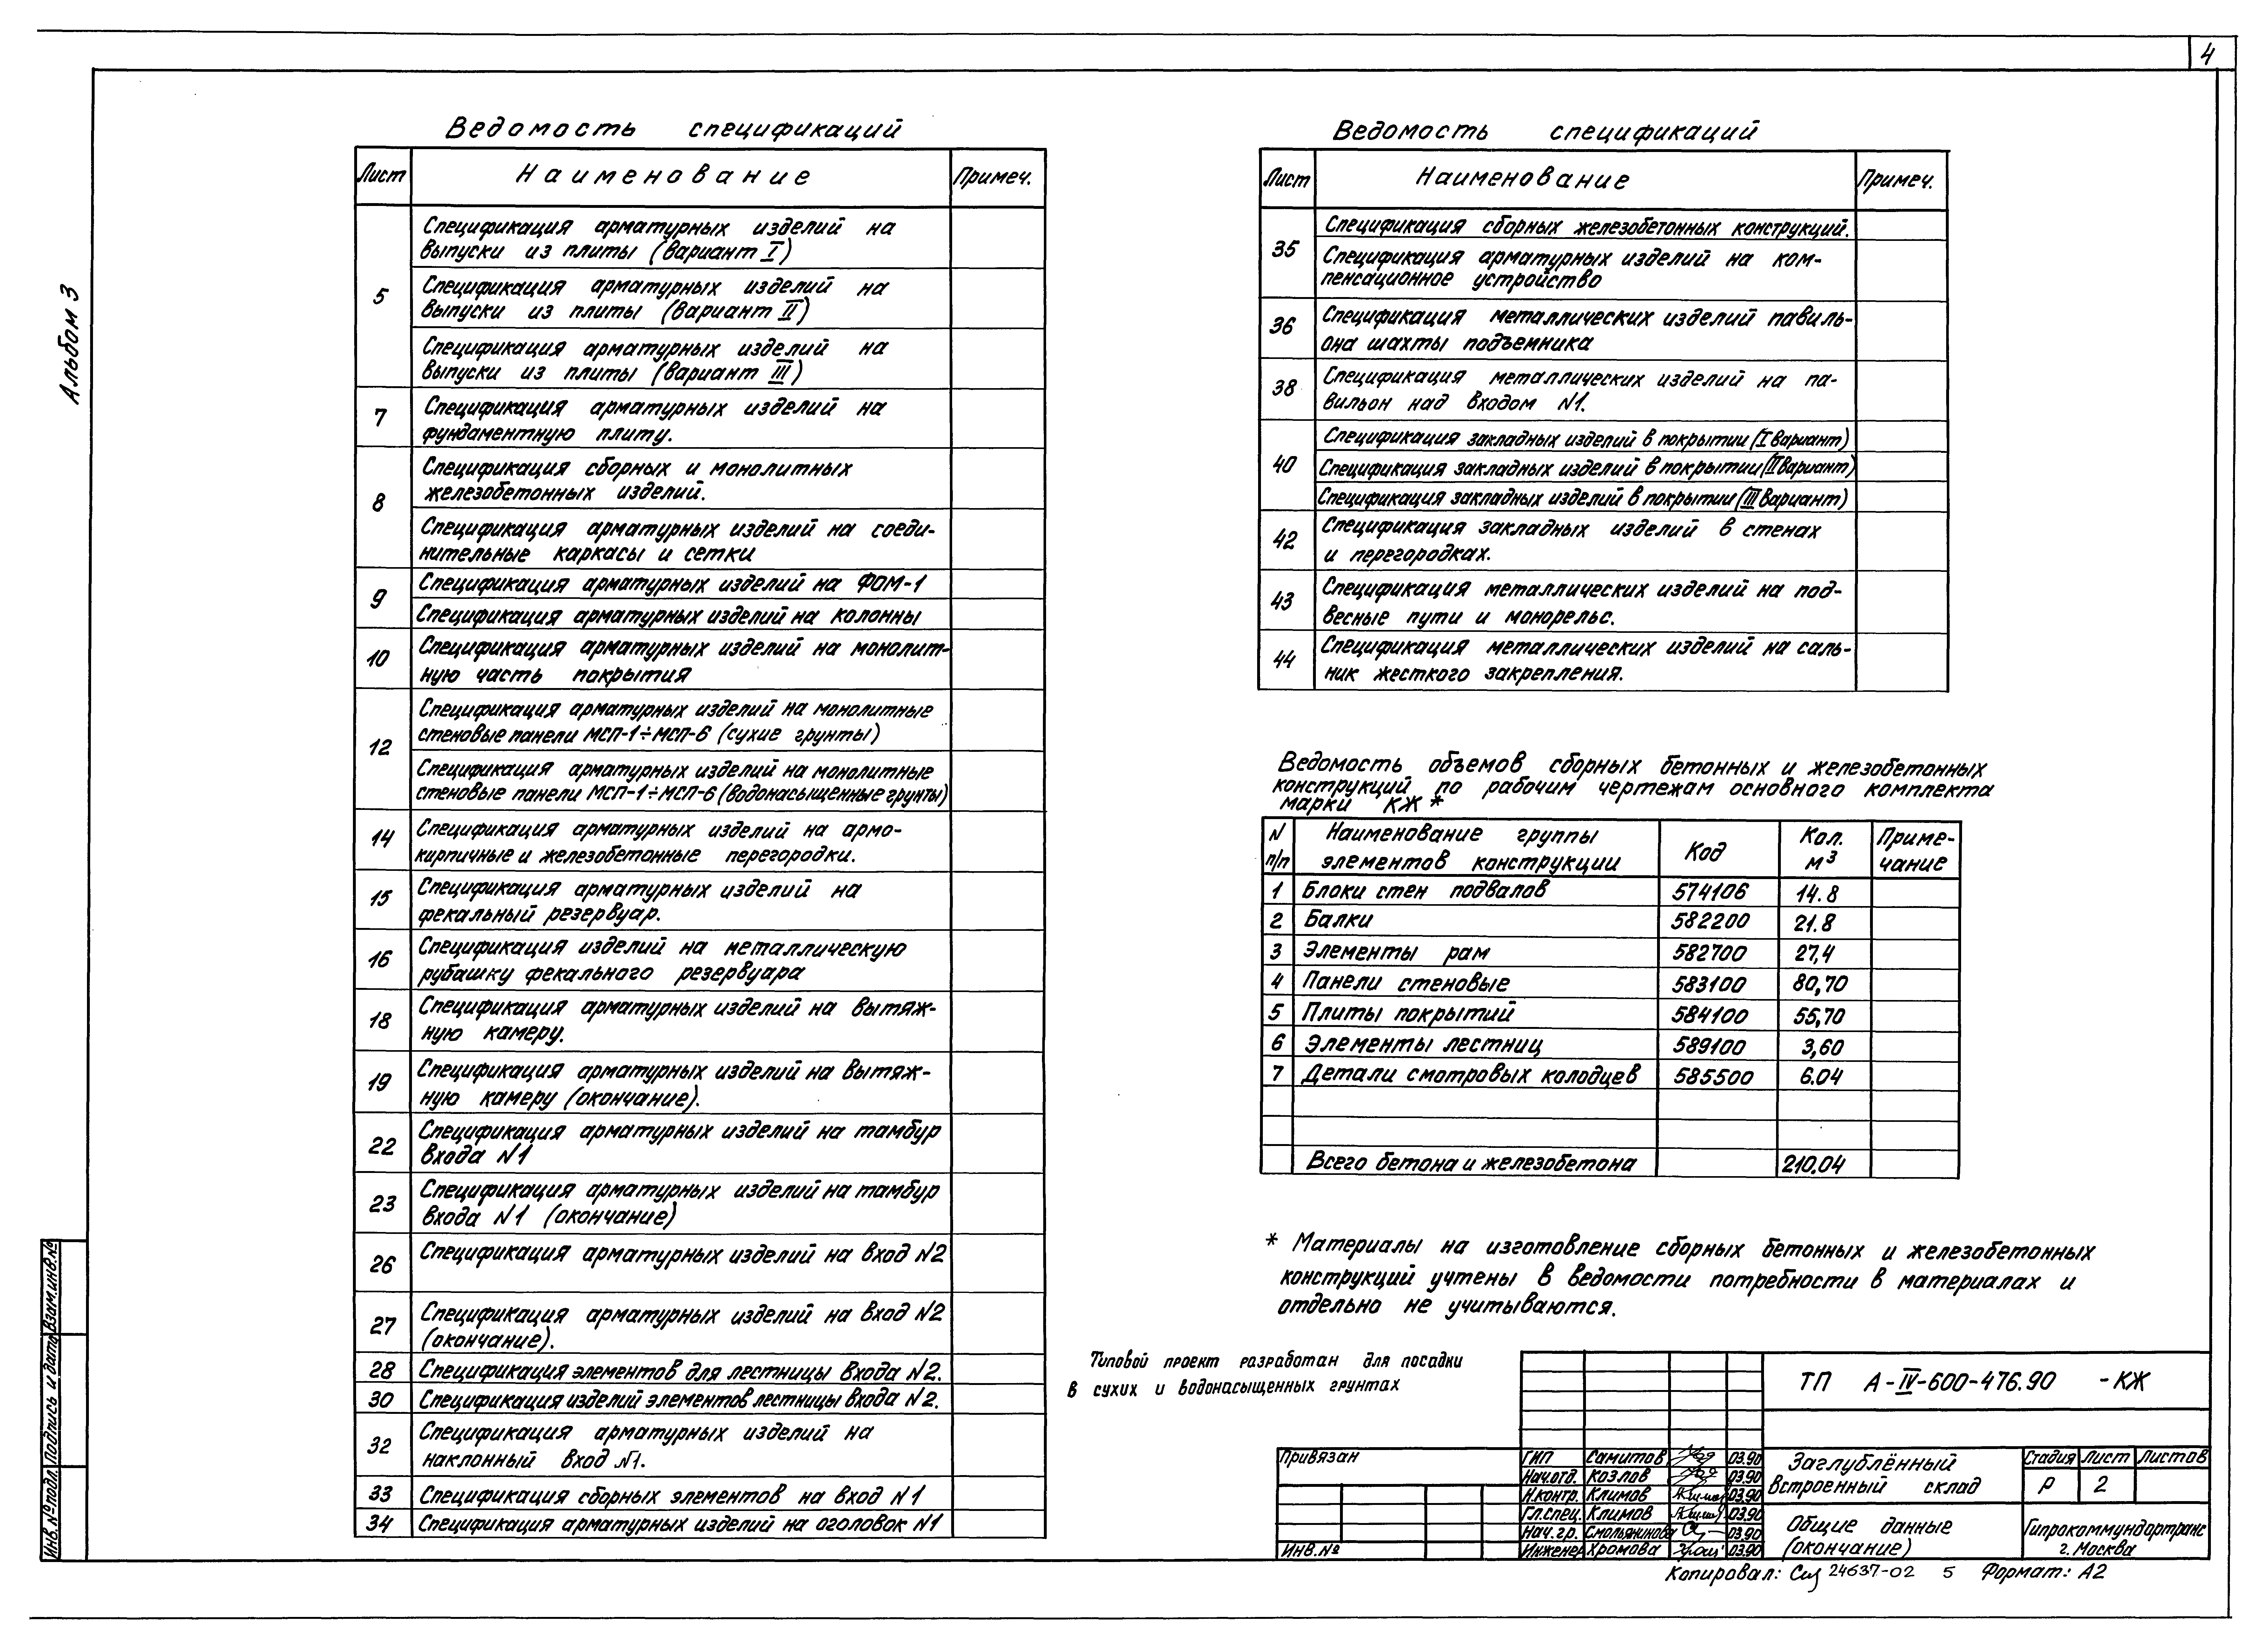 4
Альбом 3
Ведомость спецификаций
Лист Наименование Примеч.
5 Спецификация арматурных изделий на
выпуски из плиты (вариант I)
Спецификация арматурных изделий на
выпуски из плиты (вариант II)
Спецификация арматурных изделий на
выпуски из плиты (вариант III)
7 Спецификация арматурных изделий на
фундаментную плиту.
8 Спецификация сборных и монолитных
железобетонных изделий.
Спецификация арматурных изделий на соеди-
нительные каркасы и сетки
9 Спецификация арматурных изделий на ФОМ-1
Спецификация арматурных изделий на колонны
10 Спецификация арматурных изделий на монолит-
ную часть покрытия
12 Спецификация арматурных изделий на монолитные
стеновые панели МСП-1÷МСП-6 (сухие грунты)
Спецификация арматурных изделий на монолитные
стеновые панели МСП-1÷МСП-6 (водонасыщенные грунты)
14 Спецификация арматурных изделий на армо-
кирпичные и железобетонные перегородки.
15 Спецификация арматурных изделий на
фекальный резервуар.
16 Спецификация изделий на металлическую
рубашку фекального резервуара
18 Спецификация арматурных изделий на вытяж-
ную камеру.
19 Спецификация арматурных изделий на вытяж-
ную камеру (окончание).
22 Спецификация арматурных изделий на тамбур
входа N1
23 Спецификация арматурных изделий на тамбур
входа N1 (окончание)
26 Спецификация арматурных изделий на вход N2
27 Спецификация арматурных изделий на вход N2
(окончание).
28 Спецификация элементов для лестницы входа N2.
30 Спецификация изделий элементов лестницы входа N2.
32 Спецификация арматурных изделий на
наклонный вход N1.
33 Спецификация сборных элементов на вход N1
34 Спецификация арматурных изделий на оголовок N1
Ведомость спецификаций
Лист Наименование Примеч.
35 Спецификация сборных железобетонных конструкций.
Спецификация арматурных изделий на ком-
пенсационное устройство
36 Спецификация металлических изделий павиль-
она шахты подъемника
38 Спецификация металлических изделий на па-
вильон над входом N1.
40 Спецификация закладных изделий в покрытии (I вариант)
Спецификация закладных изделий в покрытии (II вариант)
Спецификация закладных изделий в покрытии (III вариант)
42 Спецификация закладных изделий в стенах
и перегородках.
43 Спецификация металлических изделий на под-
весные пути и монорельс.
44 Спецификация металлических изделий на саль-
ник жесткого закрепления.
Ведомость объемов сборных бетонных и железобетонных
конструкций по рабочим чертежам основного комплекта
марки КЖ *
N п/п Наименование группы элементов конструкции Код Кол. м³ Приме-чание
1 Блоки стен подвалов 574106 14.8
2 Балки 582200 21.8
3 Элементы рам 582700 27,4
4 Панели стеновые 583100 80,70
5 Плиты покрытий 584100 55,70
6 Элементы лестниц 589100 3,60
7 Детали смотровых колодцев 585500 6.04
Всего бетона и железобетона 210.04
* Материалы на изготовление сборных бетонных и железобетонных
конструкций учтены в ведомости потребности в материалах и
отдельно не учитываются.
Типовой проект разработан для посадки
в сухих и водонасыщенных грунтах
ТП А-IV-600-476.90 -КЖ
Привязан
ИНВ.№
ГИП Самитов 03.90
Нач.отд. Козлов 03.90
Н.контр. Климов 03.90
Гл.спец. Климов 03.90
Нач.гр. Смольянинова 03.90
Инженер Хромова 03.90
Заглублённый
встроенный склад
Стадия Лист Листов
Р 2
Общие данные
(окончание)
Гипрокоммундортранс
г. Москва
Копировал: 24637-02 5 Формат: А2
Инв.№подл. Подпись и дата Взам.инв.№